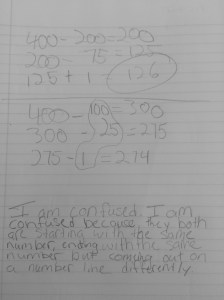 400 - 200 = 200
200 - 75 = 125
125 + 1 = 126
400 - 100 = 300
300 - 25 = 275
275 - 1 = 274
I am confused. I am
confused because, they both
are starting with the same
number, ending with the same
number but coming out on
a number line differently